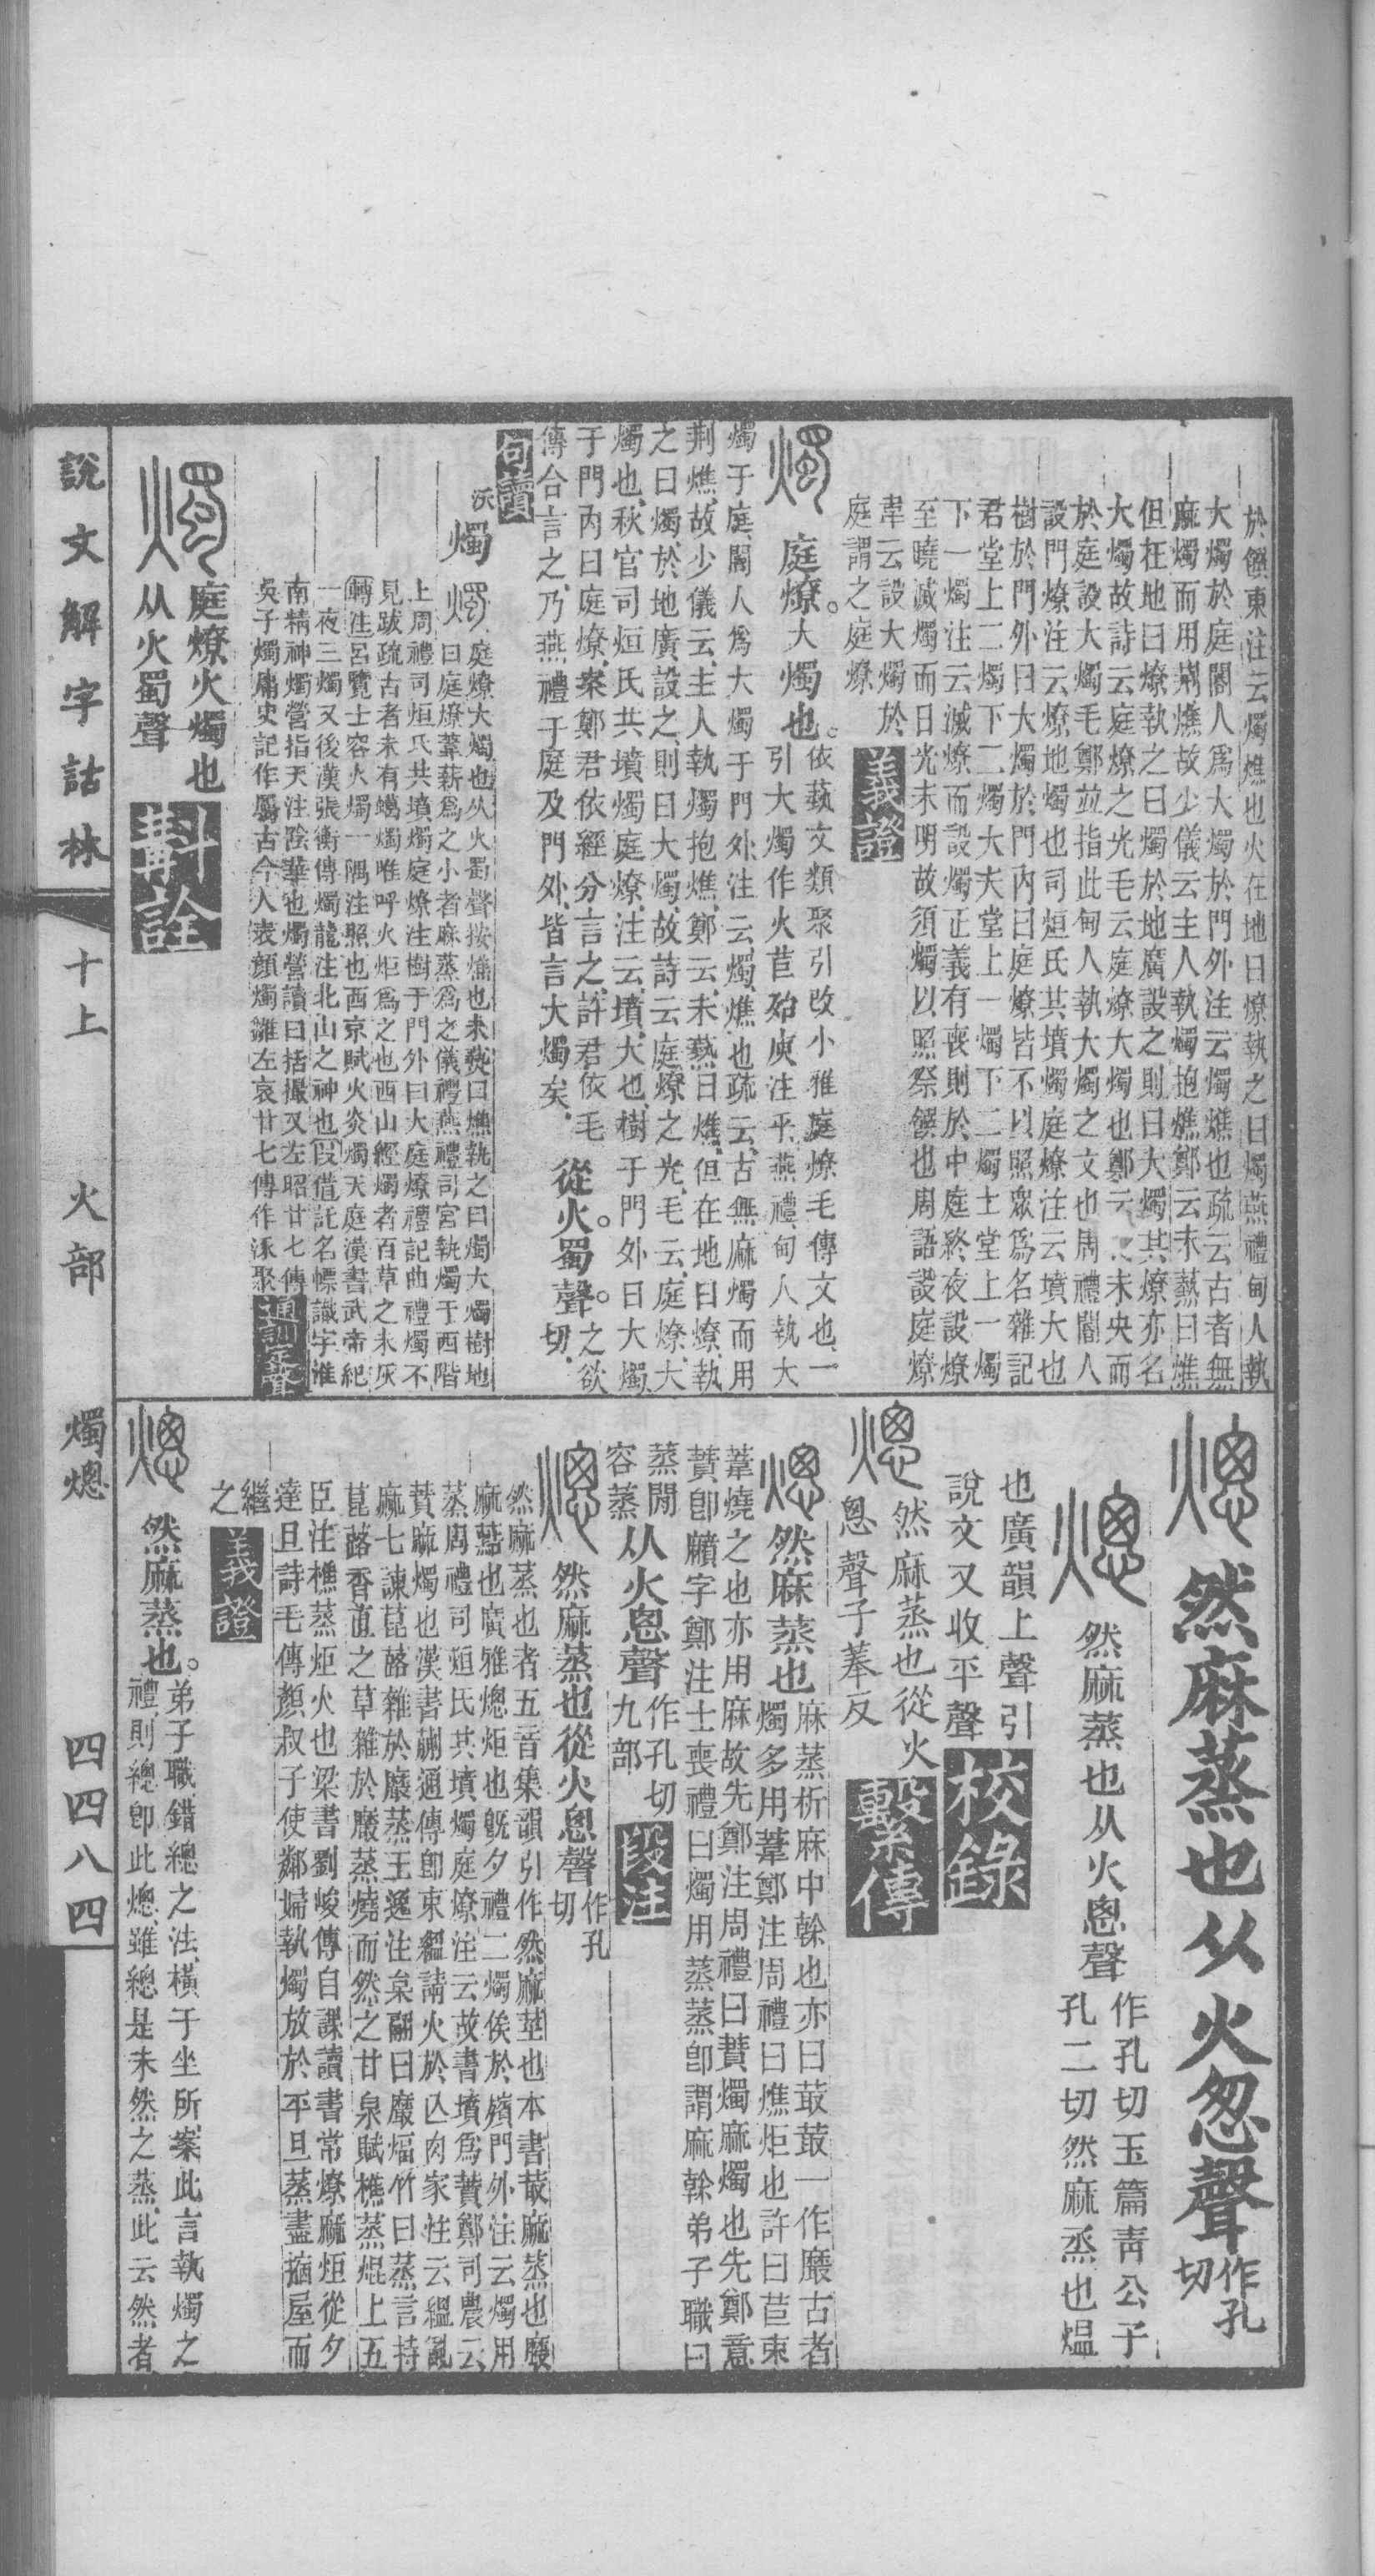 於饌東注云燭燋也火在地曰燎執之曰燭燕禮甸人執
大燭於庭閽人爲大燭於門外注云燭燋也疏云古者無
麻燭而用荆燋故少儀云主人執燭抱燋鄭云未爇曰燋
但在地曰燎執之曰燭於地廣設之則曰大燭其燎亦名
大燭故詩云庭燎之光毛云庭燎大燭也鄭云未央而
於庭設大燭毛鄭並指此甸人執大燭之文也周禮閽人
設門燎注云燎地燭也司烜氏共墳燭庭燎注云墳大也
樹於門外曰大燭於門內曰庭燎皆不以照眾爲名雜記
君堂上二燭下二燭大夫堂上一燭下二燭士堂上一燭
下一燭注云滅燎而設燭正義有喪則於中庭終夜設燎
至曉滅燭而日光未明故須燭以照祭饌也周語設庭燎
韋云設大燭於
庭謂之庭燎
義證
庭燎大燭也
依藝文類聚引改小雅庭燎毛傳文也一
引大燭作火苣殆庾注乎燕禮甸人執大
燭于庭閽人爲大燭于門外注云燭燋也疏云古無麻燭而用
荆燋故少儀云主人執燭抱燋鄭云未爇曰燋但在地曰燎執
之曰燭於地廣設之則曰大燭故詩云庭燎之光毛云庭燎大
燭也秋官司烜氏共墳燭庭燎注云墳大也樹于門外曰大燭
于門內曰庭燎案鄭君依經分言之許君依毛
傳合言之乃燕禮于庭及門外皆言大燭矣
從火蜀聲
之欲
切
句讀
燭
沃
庭燎大燭也从火蜀聲按燋也未爇曰燋執之曰燭大燭樹地
曰庭燎葦薪爲之小者麻蒸爲之儀禮燕禮司宮執燭于西階
上周禮司烜氏共墳燭庭燎注樹于門外曰大庭燎禮記曲禮燭不
見跋疏古者未有蠟燭唯呼火炬爲之也西山經燭者百草之未灰
轉注呂覽士容火燭一隅注照也西京賦火炎燭天庭漢書武帝紀
一夜三燭又後漢張衡傳燭龍注北山之神也叚借託名幖識字淮
南精神燭營指天注陰華也燭營讀曰括撮又左昭廿七傳
吳子燭庸史記作屬古今人表顔燭雛左哀廿七傳作涿聚
通訓定聲
庭燎火燭也
从火蜀聲
斠詮
然麻蒸也从火怱聲
作孔
切
然麻蒸也从火悤聲
作孔切玉篇靑公子
孔二切然麻烝也熅
也廣韻上聲引
說文又收平聲
校錄
然麻蒸也從火
悤聲子菶反
繫傳
然麻蒸也
麻蒸析麻中榦也亦曰菆菆一作黀古者
燭多用葦鄭注周禮曰燋炬也許曰苣束
葦燒之也亦用麻故先鄭注周禮曰蕡燭麻燭也先鄭意
蕡卽黂字鄭注士喪禮曰燭用蒸蒸卽謂麻榦弟子職曰
蒸閒
容蒸
从火悤聲
作孔切
九部
段注
然麻蒸也從火悤聲
作孔
切
然麻蒸也者五音集韻引作然麻莖也本書菆麻蒸也黀
麻藍也廣雅熜炬也旣夕禮二燭俟於殯門外注云燭用
蒸周禮司烜氏共墳燭庭燎注云故書墳爲蕡鄭司農云
蕡麻燭也漢書蒯通傳卽束縕請火於亾肉家注云縕亂
麻七諫菎蕗雜於黀蒸王逸注枲翮曰黀煏竹曰蒸言持
菎蕗香直之草雜於黀蒸燒而然之甘泉賦樵蒸焜上五
臣注樵蒸炬火也梁書劉峻傳自課讀書常燎麻炬從夕
達旦詩毛傳顏叔子使鄰婦執燭放於平旦蒸盡搐屋而
繼
之
義證
然麻蒸也
弟子職錯總之法橫于坐所案此言執燭之
禮則總卽此熜雖總是未然之蒸此云然者
說文解字詁林
十上
火部
燭熜
四四八四